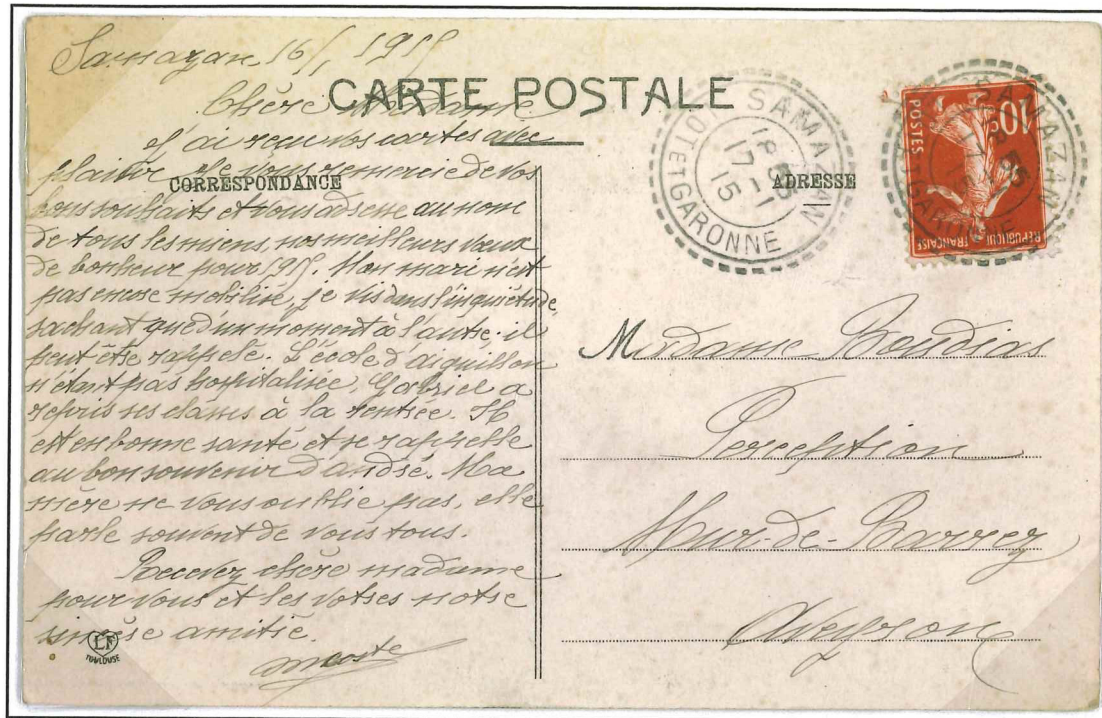 Samazan 16/1 1915
CARTE POSTALE
Chère Madame
J'ai reçu vos cartes avec
plaisir je vous remercie de vos
CORRESPONDANCE
bons souhaits et vous adresse au nom
de tous les miens, nos meilleurs vœux
de bonheur pour 1915. Mon mari n'est
pas encore mobilisé, je vis dans l'inquiétude,
sachant que d'un moment à l'autre il
peut être rappelé. L'école d'aiguillon
n'étant pas hospitalisée, Gabriel a
repris ses classes à la rentrée. Il
est en bonne santé et se rappelle
au bon souvenir d'andré. Ma
mère ne vous oublie pas, elle
parle souvent de vous tous.
Recevez chère madame
pour vous et les votres notre
sincère amitié.
LF
TOULOUSE
SAMAZAN
18 35
17 -1
15
LOT ET GARONNE
ADRESSE
SAMAZAN
LOT ET GARONNE
10c
POSTES
REPUBLIQUE FRANÇAISE
Madame
Perception
Mur-de-Barrez
Aveyron